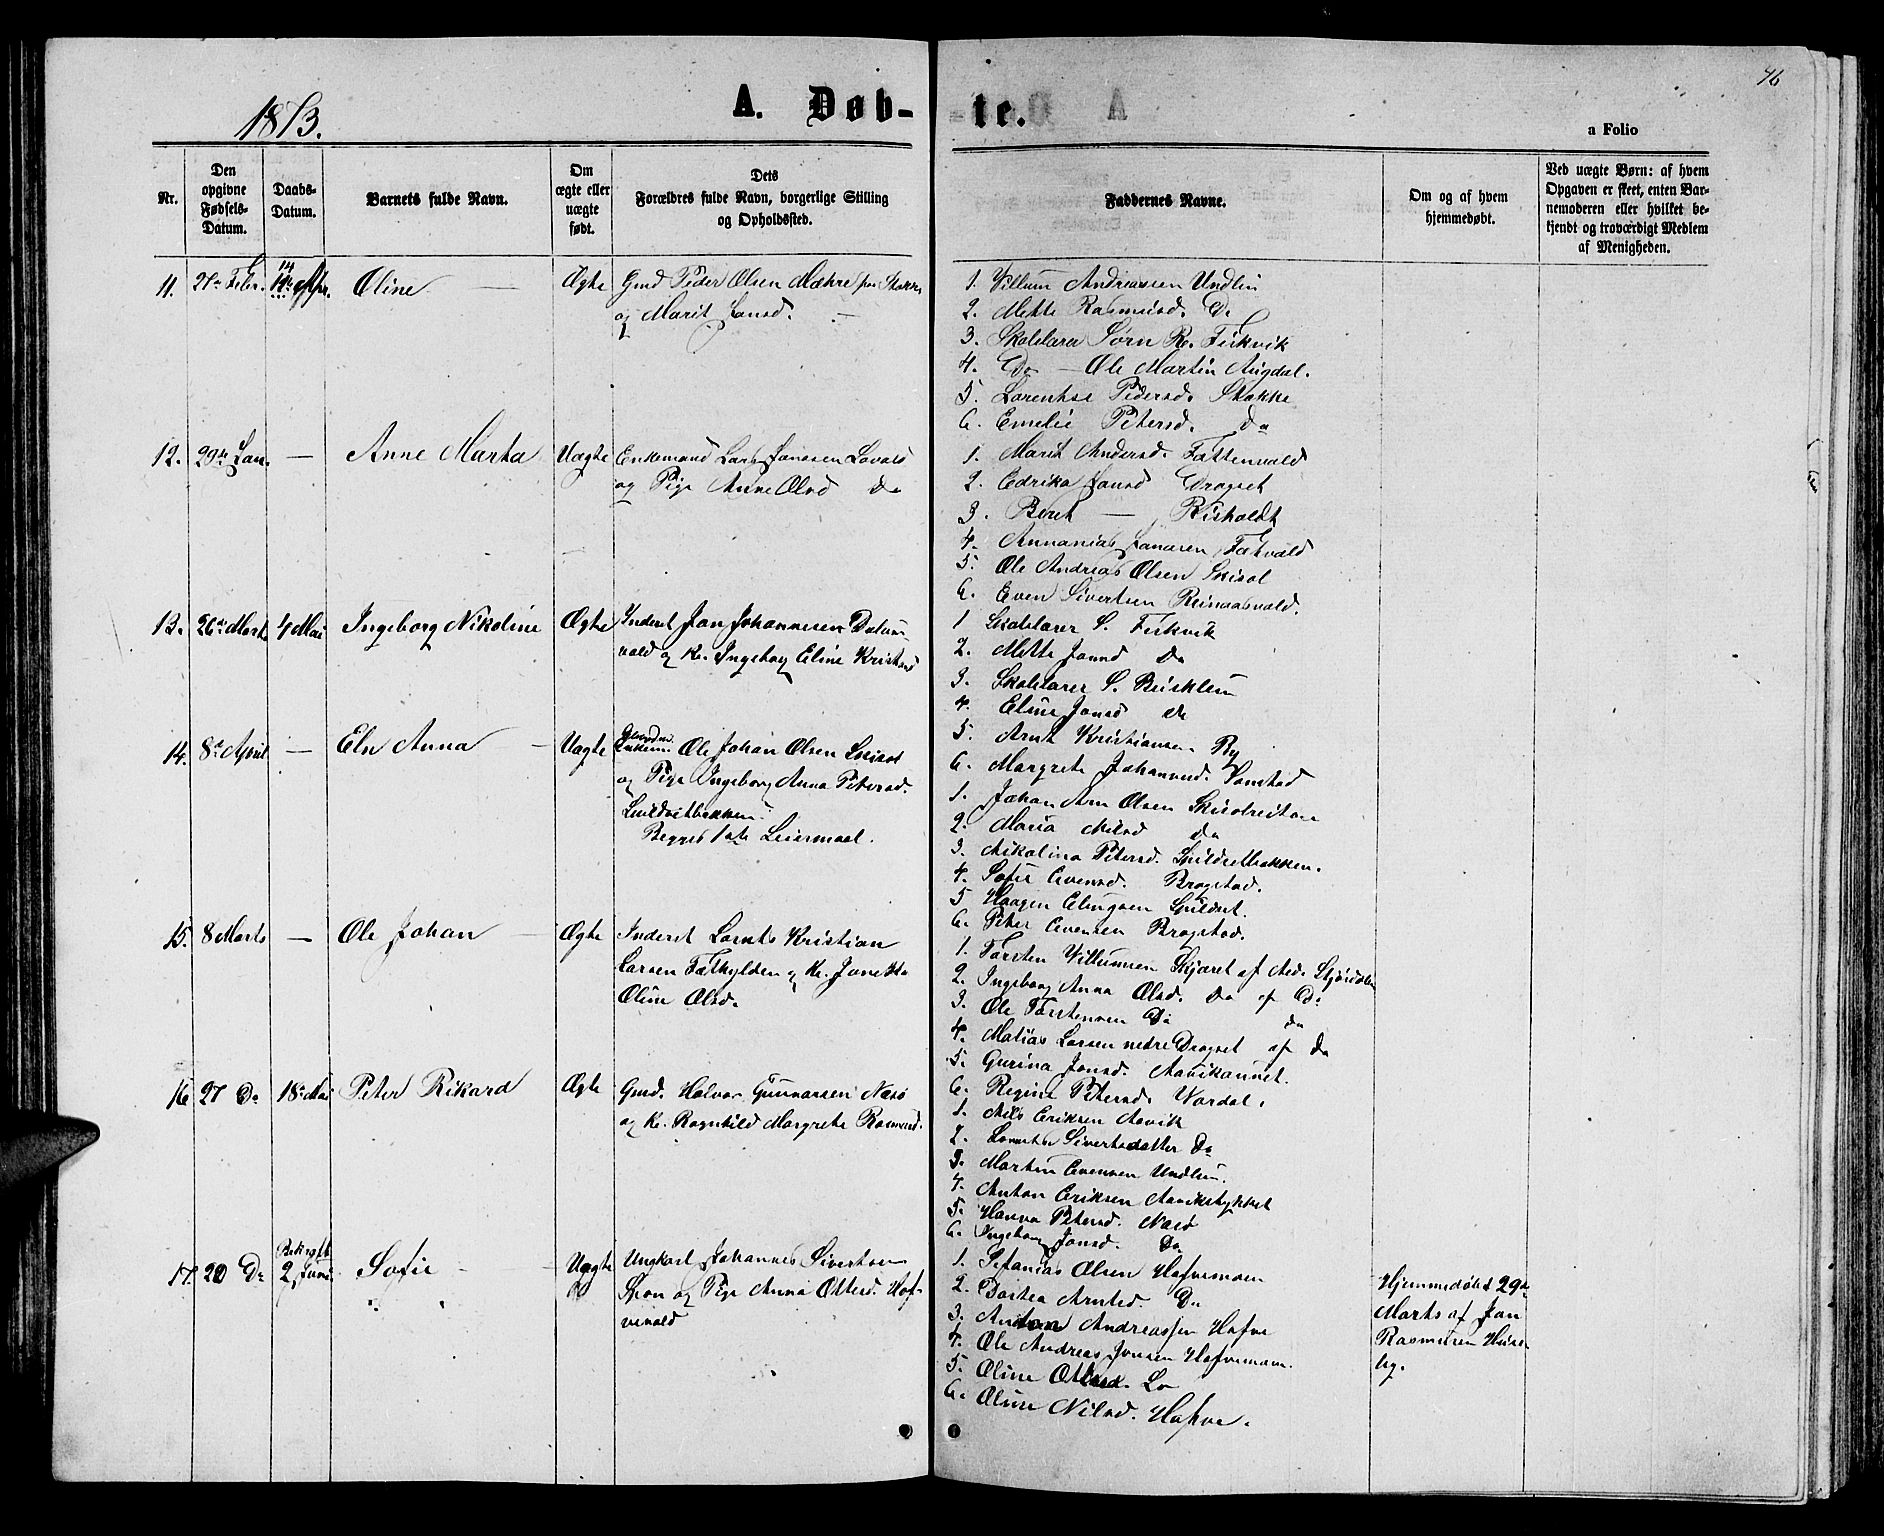 1873.
A. Døb-
te.
76
a Folio
Nr.
Den opgivne Fødsels-Datum.
Daabs-Datum.
Barnets fulde Navn.
Om ægte eller uægte født.
Dets
Forældres fulde Navn, borgerlige Stilling
og Opholdssted.
Faddernes Navne.
Om og af hvem
hjemmedøbt.
Ved uægte Børn: af hvem
Opgaven er skeet, enten Bar-
nemoderen eller hvilket be-
kjendt og troværdigt Medlem
af Menigheden.
11. 27de Febr. 14 Apr. Oline Ægte Gmd Peder Olsen Mæhre
og Marit Jonsd.
1. Villum Andreassen Undlin
2. Mette Rasmusd. Do
3. Skolelærer Sørn R. Fiskvik
4. Do — Ole Martin Augdal.
5. Lorentse Pedersd. Stokke
6. Emelie Petersd. Do
12. 29de Jan. — Anne Marta Uægte Enkemand Lars Jonassen
og Pige Anne Olsd Do
1. Marit Andersd. Fættenvald
2. Edrika Jonsd Dragset
3. Beret — Risholdt
4. Annanias Jonasen
5. Ole Andreas Olsen
6. Even Sivertsen
13. 26de Marts 4 Mai Ingeborg Nikoline Ægte Inderst Jon Johannesen
vald og K. Ingeborg Eline Kristansd
1 Skolelærer S. Fiskvik
2. Mette Jonsd Do
3. Skolelærer S.
4. Eline Jonsd Do
5. Arnt Kristiansen By
6. Margrete Johannesd.
14. 8de April — Eln Anna Uægte Ole Johan Olsen
og Pige Ingeborg Anna Petersd.
Begges 1ste Leiermaal.
1. Johan Arn Olsen
2. Maria Nilsd Do
3. Nikolina Petersd.
4. Sofie Evensd. Brogstad.
5 Haagen Elingsen
6. Peter Evensen Brogstad.
15. 8 Marts — Ole Johan Ægte Inderst Lornts Kristian
Larsen og K. Jonetta
Oline Olsd.
1. Torsten Villumsen Skjæret af Ned. Stjørdalen
2. Ingeborg Anna Olsd. Do af Do
3. Ole Torstensen Do do
4. Matias Larsen nedre Dragset af Do
5. Gurina Jonsd.
6. Regine Petersd. Vordal.
16 27 Do 18de Mai Peter Rikard Ægte Gmd. Halvor Gunnarsen Næsø
og K. Ragnhild Margrete Rasmusd.
1. Nils Eriksen Aavik
2. Sivertsdatter Do
3. Martin Evensen Undlin.
4. Anton Eriksen Aavikstykket
5. Hanna Petersd. Næsø
6. Ingeborg Jonsd. Do
17. 20 Do 2 Juni Sofie Uægte Ungkarl Johannes Sivertsen
og Pige Anna Ottersd. Hof-
1. Sefanias Olsen Hofvemoen
2. Dortea Arntsd. Do
3. Andreassen Hofve
4. Ole Andreas Jonsen Hofvemoen.
5. Oline Ottersd. Lo
6. Oline Nilsd. Hofve.
Hjemmedøbt 29de
Marts af Jon
Rasmusen Huse-
by.